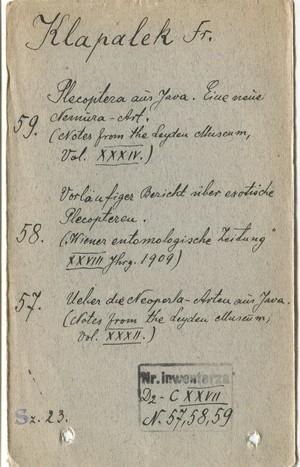 Klapalek Fr.
Plecoptera aus Java. Eine neue
59. Nemura-Art.
(Notes from the Leyden Museum,
Vol. XXXIV.)
Vorläufiger Bericht über exotische
Plecopteren.
58. (Wiener entomologische Zeitung"
XXVIII Jhrg. 1909)
57. Ueber die Neoperla-Arten aus Java.
(Notes from the Leyden Museum,
Vol. XXXII.)
Nr. inwentarza
Dz-C XXVII
Sz. 23. N. 57, 58, 59